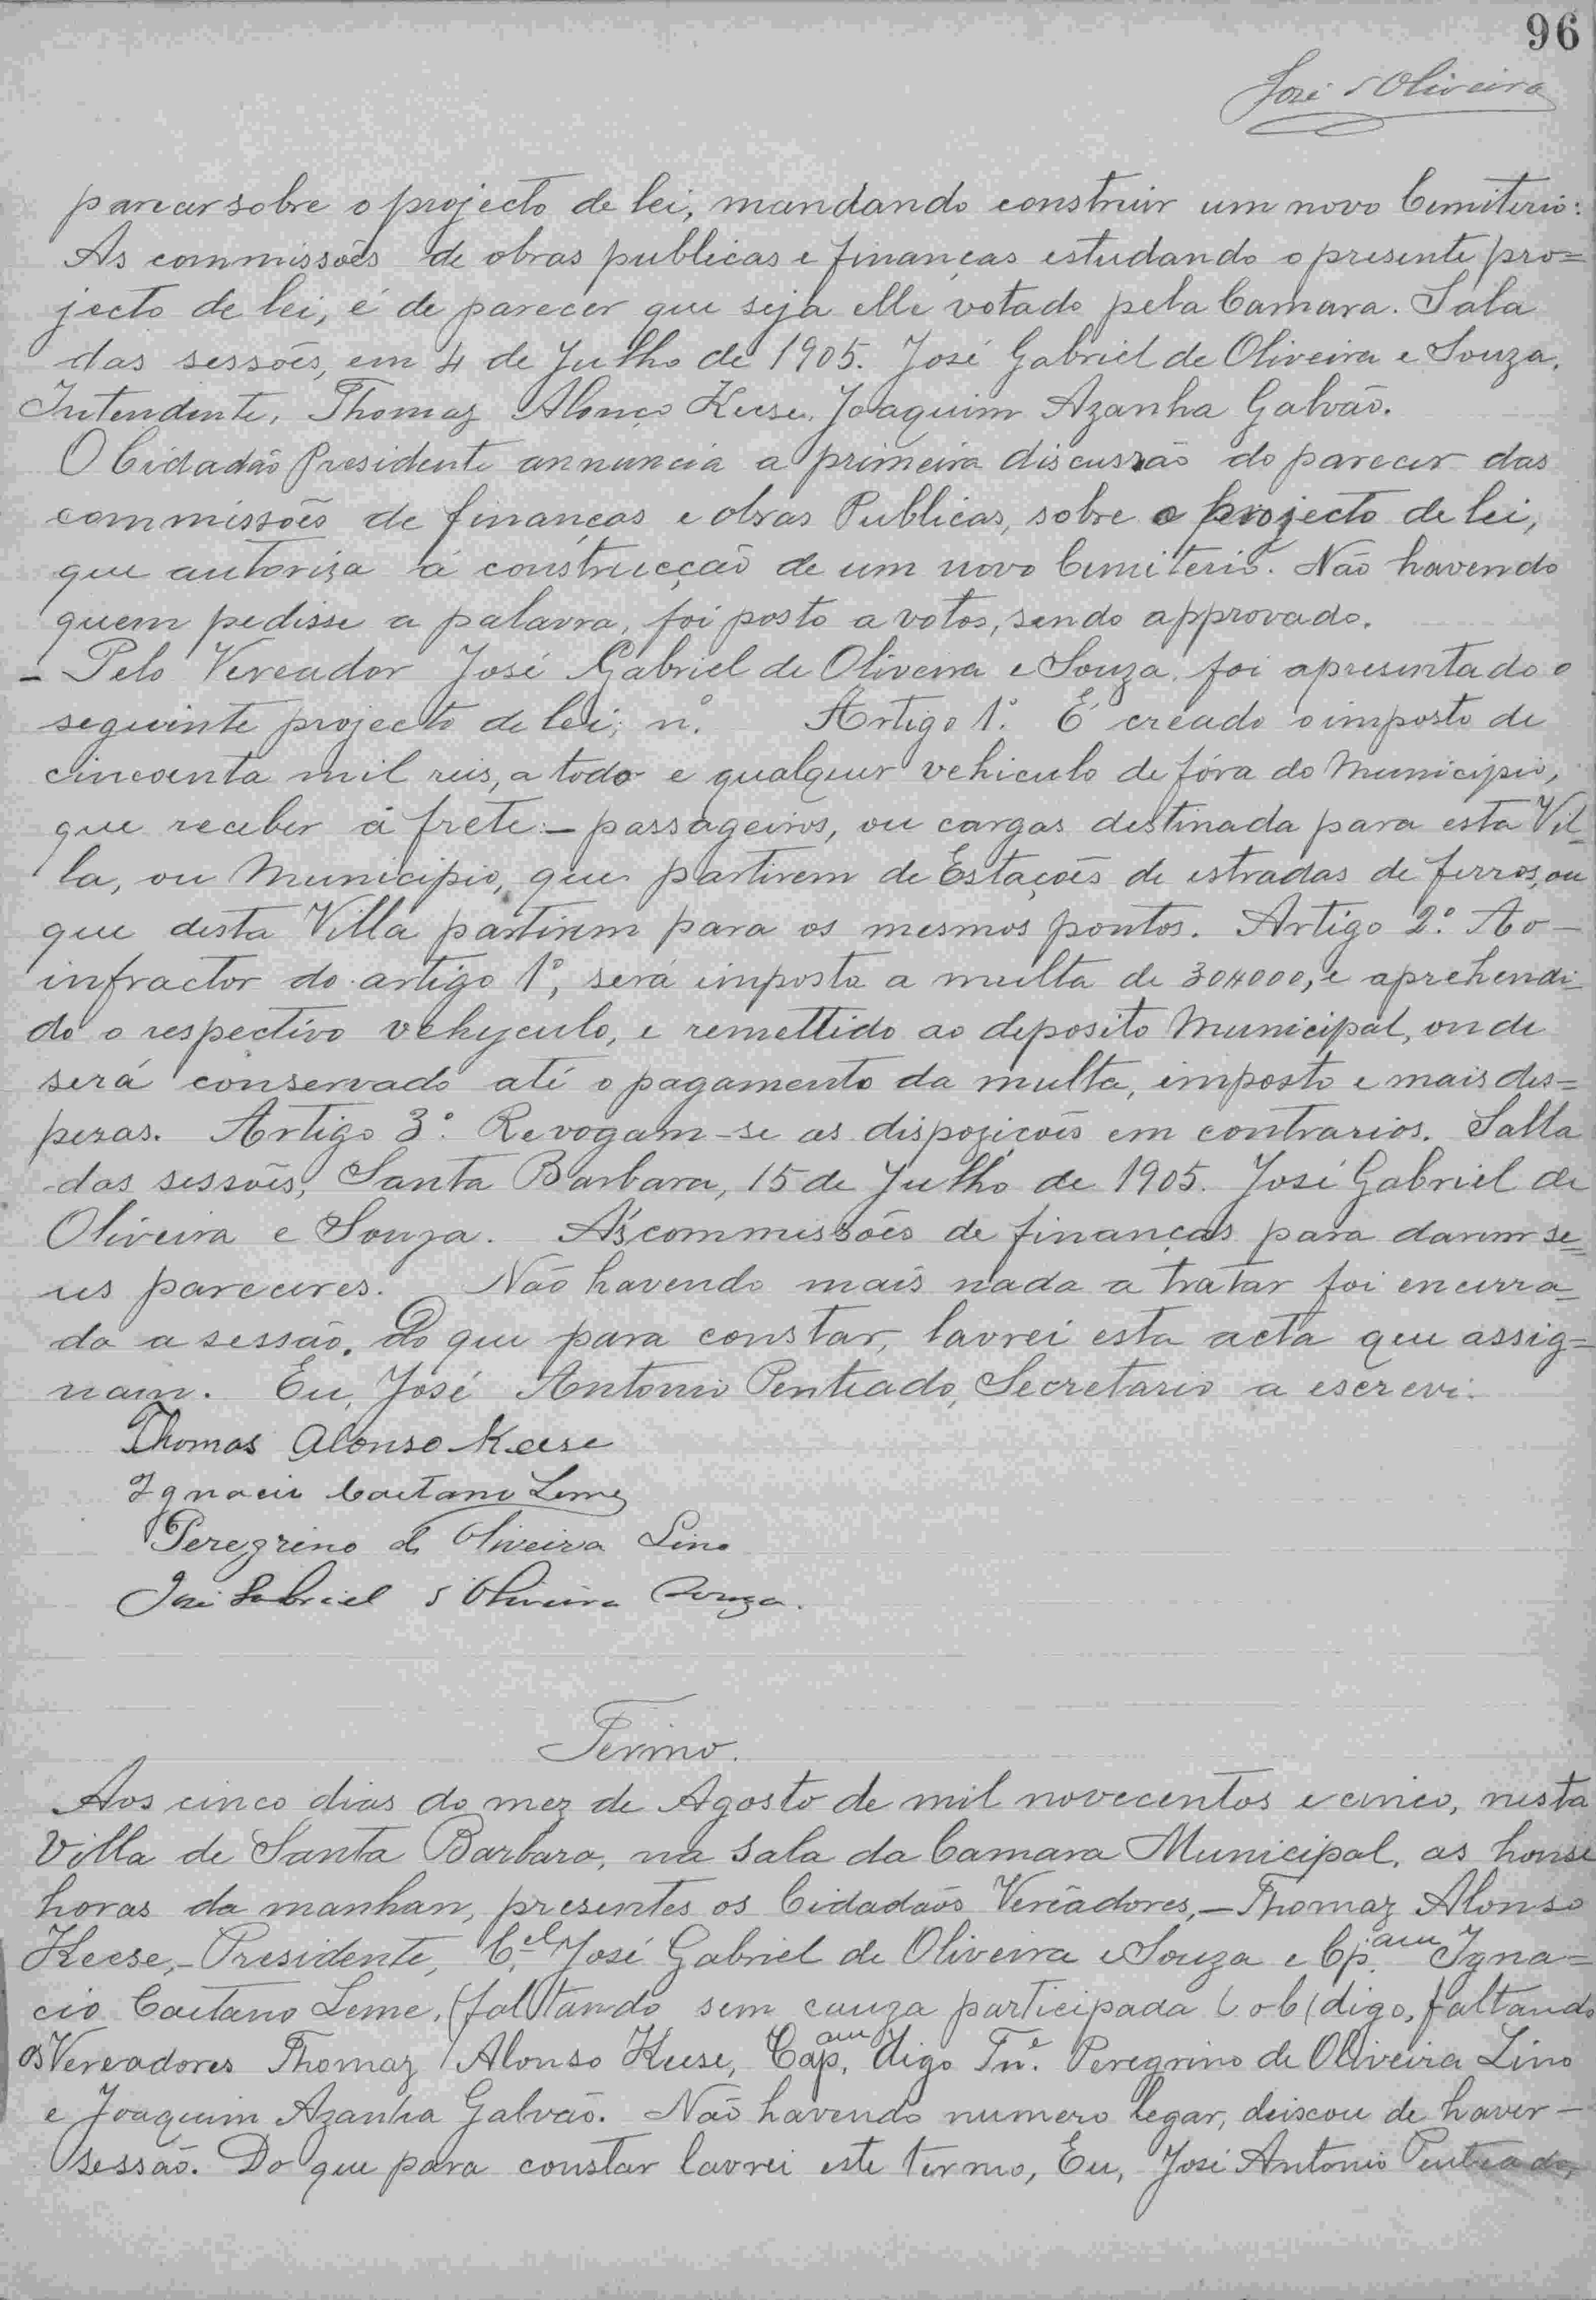 96
José d'Oliveira
parecer sobre o projecto de lei, mandando construir um novo Cemiterio:
As commissões de obras publicas e finanças estudando o presente pro=
jecto de lei, é de parecer que seja elle votado pela Camara. Sala
das sessões, em 4 de Julho de 1905. José Gabriel de Oliveira e Souza,
Intendente, Thomaz Alonço Keese, Joaquim Azanha Galvão.
O Cidadão Presidente annuncia a primeira discussão do parecer das
commissões de finanças e obras Publicas, sobre o projecto de lei,
que autoriza á construcção de um novo Cemiterio. Não havendo
quem pedisse a palavra, foi posto a votos, sendo approvado.
- Pelo Vereador José Gabriel de Oliveira e Souza, foi apresentado o
seguinte projecto de lei; nº. Artigo 1º. É creado o imposto de
cincoenta mil reis, a todo e qualquer vehiculo de fóra do Municipio,
que receber á frete:- passageiros, ou cargas destinada para esta Vil-
la, ou Municipio, que partirem de Estações de estradas de ferros, ou
que desta Villa partirem para os mesmos pontos. Artigo 2º. Ao-
infractor do artigo 1º, será imposta a multa de 30$000, e aprehendi-
do o respectivo vehyculo, e remettido ao deposito Municipal, onde
será conservado até o pagamento da multa, imposto e mais des=
pezas. Artigo 3º. Revogam-se as dispozições em contrarios. Salla
das sessões, Santa Barbara, 15 de Julho de 1905. José Gabriel de
Oliveira e Souza. Ás commissões de finanças para darem se=
us pareceres. Não havendo mais nada a tratar foi encerra=
da a sessão. Do que para constar, lavrei esta acta que assig=
nam. Eu, José Antonio Penteado, Secretario a escrevi.
Thomas Alonso Keese
Ignacio Caetano Leme
Peregrino de Oliveira Lino
José Gabriel d'Oliveira Souza.
Termo.
Aos cinco dias do mez de Agosto de mil novecentos e cinco, nesta
Villa de Santa Barbara, na Sala da Camara Municipal, as honse
horas da manhan, presentes os Cidadãos Vereadores,- Thomaz Alonso
Keese,- Presidente, C.el José Gabriel de Oliveira e Souza e Cp.am Igna=
cio Caetano Leme, (faltando sem cauza participada ( o b ( digo, faltando
os Vereadores Thomaz Alonso Keese, Cap.am digo Tn.e Peregrino de Oliveira Lino
e Joaquim Azanha Galvão. Não havendo numero legar, deiscou de haver-
sessão. Do que para constar lavrei este termo, Eu, José Antonio Penteado,